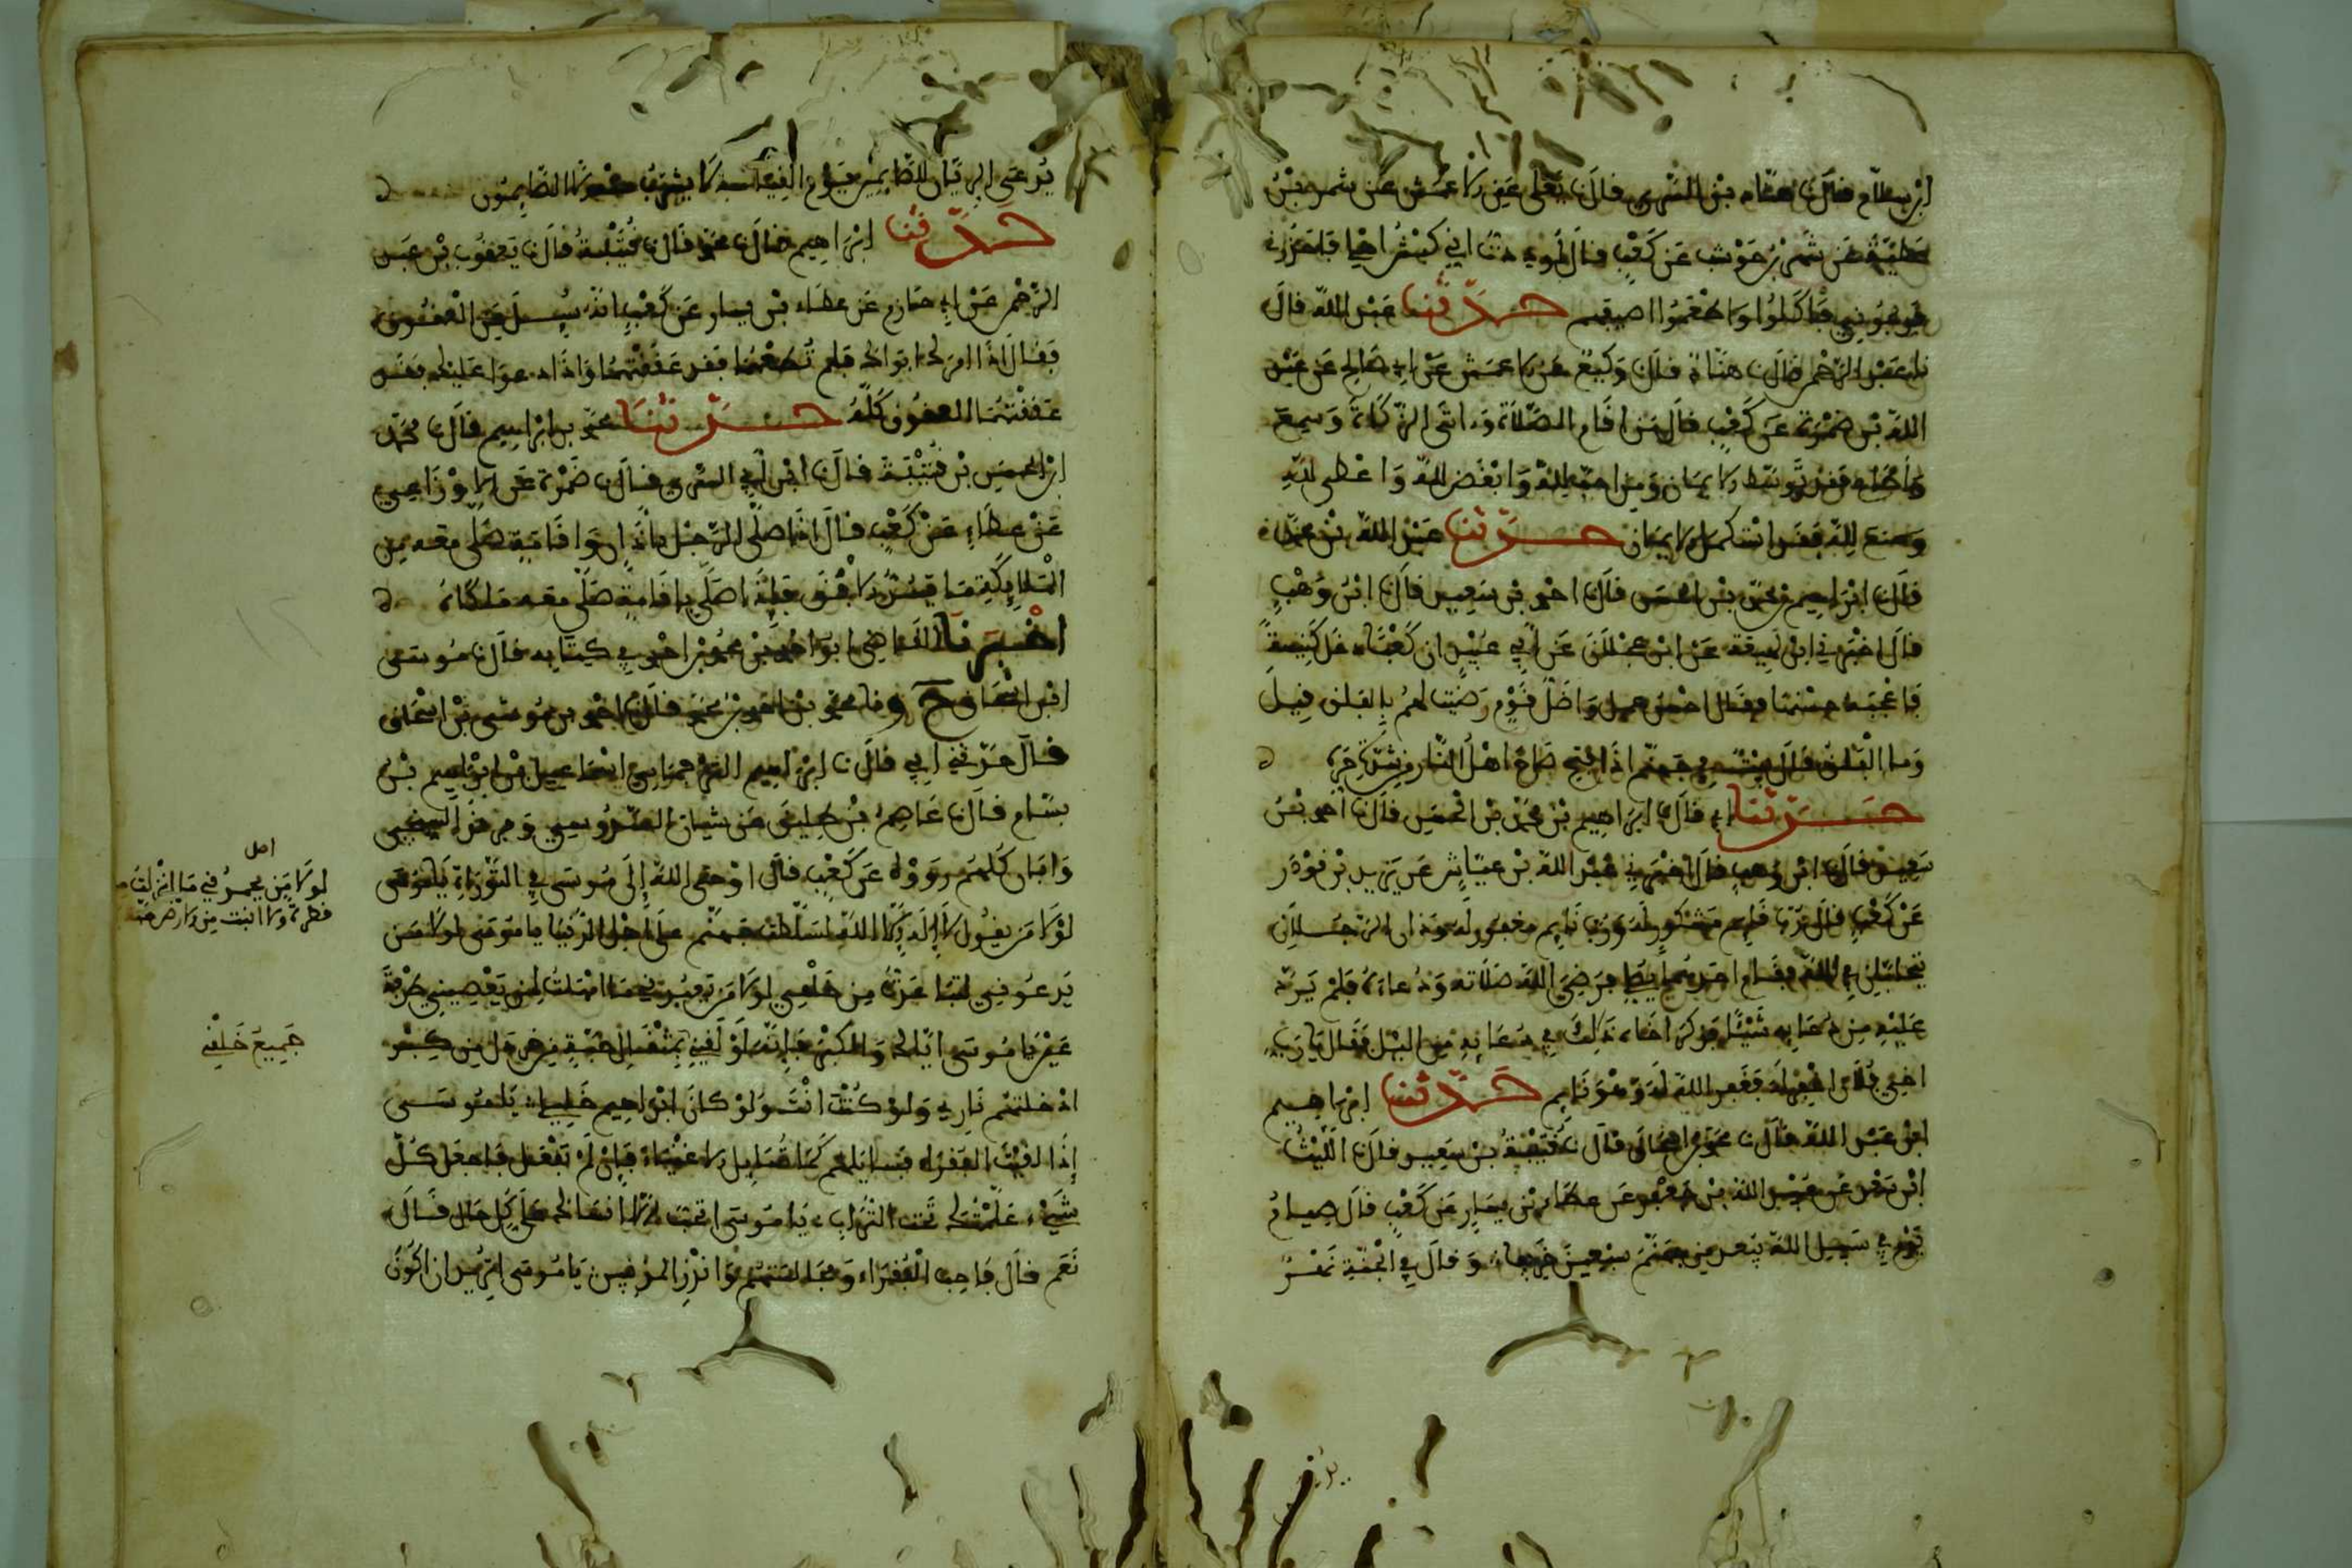 ابن سلام قال نا هناد بن السري قال نا يعلى عن الاعمش عن شمر بن
عطية عن شهر بن حوشب عن كعب قال
حدثنا عبد الله قال
نا عبد الرحمن قال نا هناد قال نا وكيع عن الاعمش عن ابي صالح عن عبد
الله بن ضمرة عن كعب قال من اقام الصلاة واتى الزكاة وسمع
واطاع فقد توسط الايمان ومن احب لله وابغض لله واعطى لله
ومنع لله فقد استكمل الايمان حدثنا عبد الله بن محمد
قال نا ابراهيم بن محمد بن الحسن قال نا احمد بن سعيد قال نا ابن وهب
قال اخبرني ابن لهيعة عن ابن عجلان عن ابي عبيد ان كعبا دخل كنيسة
فاعجبه حسنها فقال احسن عمل واضل قوم رضيت لهم بالفلق قيل
وما الفلق قال بيت في جهنم اذا فتح صاح اهل النار من شدة حره
حدثنا ابي قال نا ابراهيم بن محمد بن الحسن قال نا احمد بن
سعيد قال نا ابن وهب قال اخبرني عبد الله بن عياش عن يزيد بن قوذر
عن كعب قال رب قائم مشكور له ورب نائم مغفور له وذاك ان الرجلان
يتحابان في الله فقام احدهما يصلي فرضي الله صلاته ودعاءه فلم يرد
عليه من دعائه شيئا فذكر اخاه ذلك في دعائه من الليل فقال يا رب
اخي فلان اغفر له فغفر الله له وهو نائم حدثنا ابراهيم
ابن عبد الله قال نا محمد بن اسحاق قال نا قتيبة بن سعيد قال نا الليث
ابن سعد عن عبيد الله بن جعفر عن عطاء بن يسار عن كعب قال صيام
يوم في سبيل الله يبعد من جهنم سبعين خريفا وقال في الجنة نهر
يدعى الريان للصائمين يوم القيامة لا يشرب منه الا الصائمون
حدثنا ابراهيم قال نا محمد قال نا قتيبة قال نا يعقوب بن عبد
الرحمن عن ابي حازم عن عطاء بن يسار عن كعب انه سئل عن العقوق
فقال اذا امراك ابواك فلم تطعهما فقد عققتهما واذا دعوا عليك فقد
عققتهما العقوق كله حدثنا محمد بن ابراهيم قال نا محمد
ابن الحسن بن قتيبة قال نا ابن ابي السري قال نا ضمرة عن الاوزاعي
عن عطاء عن كعب قال اذا صلى الرجل باذان واقامة صلى معه من
الملائكة ما يسد الافق فاذا صلى باقامة صلى معه ملكاه
اخبرنا القاضي ابو احمد محمد بن احمد في كتابه قال نا موسى
ابن اسحاق ح ونا محمد بن احمد بن محمد قال نا احمد بن موسى بن اسحاق
قال حدثني ابي قال نا ابراهيم الترجماني اسماعيل بن ابراهيم بن
بسام قال نا عاصم بن طليق عن شيبان السدوسي وفرقد السبخي
وابان كلهم رووه عن كعب قال اوحى الله الى موسى في التوراة يا موسى
لولا من يقول لا اله الا الله لسلطت جهنم على اهل الدنيا يا موسى لولا من
يدعوني لتباعدت من خلقي لولا من يعبدني ما امهلت لمن يعصيني طرفة
عين يا موسى اياك والكبر فانه لو لقيني بمثقال حبة من خردل من كبر
ادخلتهم ناري ولو كنت انت ولو كان ابراهيم خليلي يا موسى
اذا لقيت الفقراء فسائلهم كما تسائل الاغنياء فان لم تفعل فاجعل كل
شيء علمتك تحت التراب يا موسى اتحب ان لا انساك على كل حال قال
نعم قال فاحب الفقراء ومجالستهم وانذر المذنبين يا موسى اتريد ان اكون
اصل
لولا من يحمدني ما انزلت من
قطرة ولا انبتت من الارض حبة
جميع خلقي